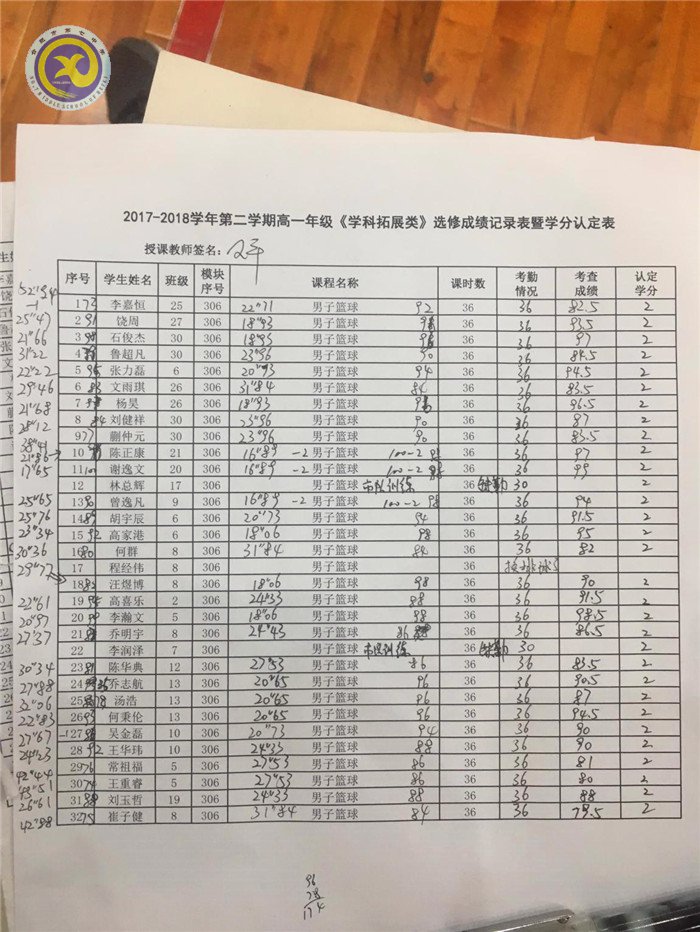 合肥市第七中学
NO.7 MIDDLE SCHOOL OF HEFEI
2017-2018学年第二学期高一年级《学科拓展类》选修成绩记录表暨学分认定表
授课教师签名：
序号 学生姓名 班级 模块序号 课程名称 课时数 考勤情况 考查成绩 认定学分
52"94 1 73 李嘉恒 25 306 22"71 男子篮球 92 36 36 82.5 2
25"47 2 91 饶周 27 306 18"93 男子篮球 36 36 93.5 2
21"66 3 石俊杰 30 306 18"93 男子篮球 36 36 97 2
31"22 4 鲁超凡 30 306 23"96 男子篮球 90 36 36 84.5 2
22"22 5 95 张力磊 6 306 20"93 男子篮球 94 36 36 94.5 2
29"46 6 83 文雨琪 26 306 31"84 男子篮球 84 36 36 83.5 2
21"68 7 杨昊 26 306 18"93 男子篮球 36 36 96.5 2
28"12 8 84 刘健祥 30 306 23"96 男子篮球 90 36 36 87 2
38"41 9 77 蒯仲元 30 306 23"96 男子篮球 90 36 36 83.5 2
21"86 10 陈正康 21 306 16"89 -2 男子篮球 100-2 98 36 36 97 2
17"65 11 谢逸文 20 306 16"89 -2 男子篮球 100-2 36 36 99 2
12 林总辉 17 306 市队训练 缺勤 30 2
25"65 13 90 曾逸凡 9 306 16"89 -2 男子篮球 100-2 98 36 36 94 2
25"76 14 89 胡宇辰 6 306 20"73 男子篮球 94 36 36 91.5 2
23"34 15 92 高家港 6 306 18"06 男子篮球 98 36 36 95 2
30"36 16 80 何群 8 306 31"84 男子篮球 84 36 36 82 2
17 程经伟 8 306 男子篮球 36
29"77 18 82 汪煜博 8 306 18"06 男子篮球 98 36 36 90 2
22"61 19 高喜乐 2 306 24"33 男子篮球 88 36 36 91.5 2
20"97 20 李瀚文 5 306 18"06 男子篮球 98 36 36 98.5 2
27"37 21 乔明宇 8 306 24"43 男子篮球 86 36 36 86.5 2
22 李润泽 7 306 市队训练 缺勤 30 2
30"34 23 81 陈华典 12 306 27"53 男子篮球 86 36 36 83.5 2
27"88 24 85 乔志航 13 306 20"65 男子篮球 96 36 36 90.5 2
31"06 25 78 汤浩 13 306 20"65 男子篮球 96 36 36 87 2
22"83 26 93 何秉伦 13 306 20"65 男子篮球 96 36 36 94.5 2
27"67 27 吴金磊 10 306 20"73 男子篮球 94 36 36 90 2
24"23 28 92 王华玮 10 306 24"33 男子篮球 88 36 36 90 2
42"44 29 76 常祖福 5 306 27"53 男子篮球 86 36 36 81 2
43"51 30 74 王重睿 5 306 27"53 男子篮球 86 36 36 80 2
26"61 31 88 刘玉哲 19 306 24"33 男子篮球 88 36 36 88 2
42"88 32 75 崔子健 8 306 31"84 男子篮球 84 36 36 79.5 2
96
78
174